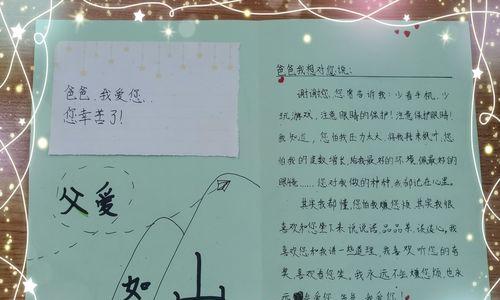 爸爸，我爱您，
您幸苦了！
父爱
如
山
爸爸我想对您说：
谢谢您，您常告诉我：少看手机，少
玩游戏，注意眼睛的保护！注意保护眼睛！
我知道，您怕我压力太大，
怕我的度数增长，给我最好的环境，佩最好的
眼镜……您对我做的种种，我都记在心里。
其实我都懂，您怕我嫌您烦，其实我很
喜欢和您坐下来说说话，品品茶，谈谈心，我
喜欢您和我讲一些道理，我喜欢听您的夸
奖，喜欢看您笑。我永远不会嫌您烦，也永
远爱您，爸爸，我爱您！